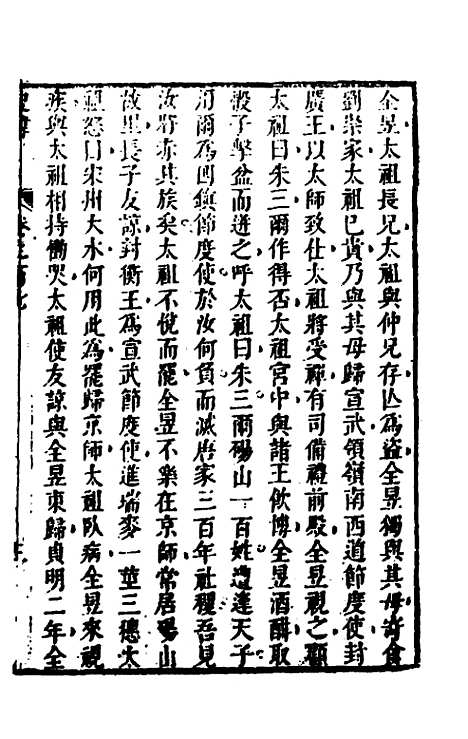 全昱太祖長兄太祖與仲兄存亾爲盜全昱獨與其母寄食
劉崇家太祖已貴乃與其母歸宣武領嶺南西道節度使封
廣王以太師致仕太祖將受禪有司備禮前殿全昱視之顧
太祖曰朱三爾作得否太祖宮中與諸王飲博全昱酒酣取
骰子擊盆而迸之呼太祖曰朱三爾碭山一百姓遭逢天子
用爾爲四鎮節度使於汝何負而滅唐家三百年社稷吾見
汝將赤其族矣太祖不悅而罷全昱不樂在京師常居碭山
故里長子友諒封衡王爲宣武節度使進瑞麥一莖三穗太
祖怒曰宋州大水何用此爲罷歸京師太祖臥病全昱來視
疾與太祖相持慟哭太祖使友諒與全昱東歸貞明二年全